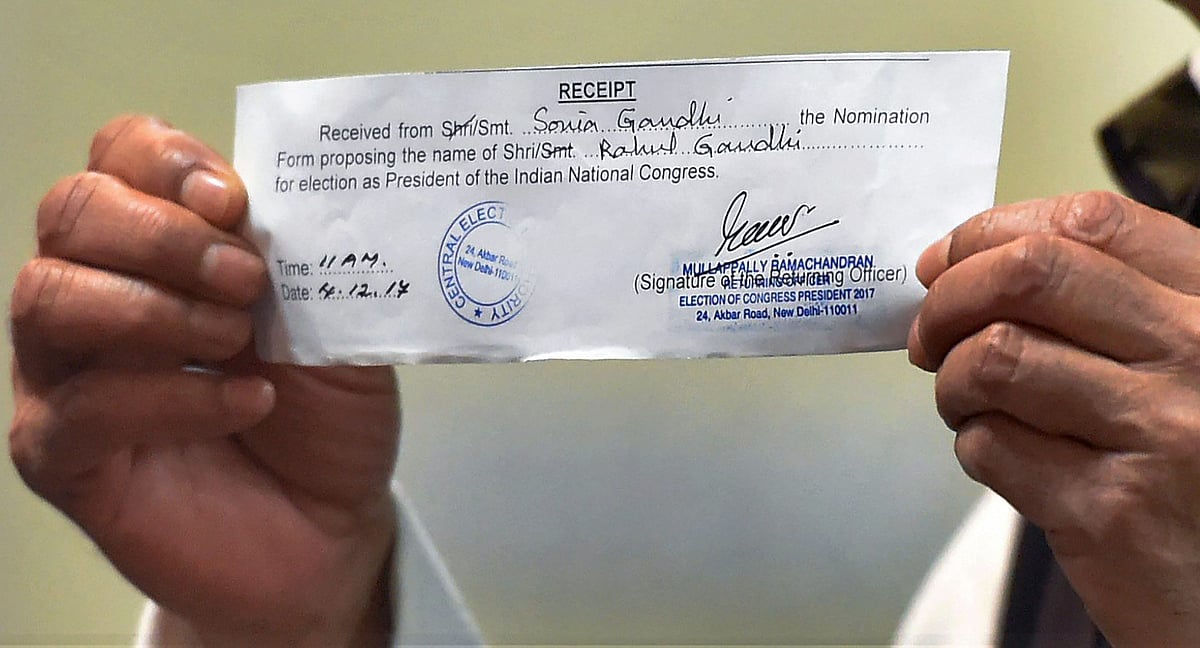 RECEIPT
Received from Shri/Smt. ..Sonia Gandhi............ the Nomination
Form proposing the name of Shri/Smt. ...Rahul Gandhi.....................
for election as President of the Indian National Congress.
Time: 11 AM.
Date: 4.12.17
CENTRAL ELECT ORITY
24, Akbar Road
New Delhi-110011
(Signature of the Returning Officer)
MULLAPPALLY RAMACHANDRAN
RETURNING OFFICER
ELECTION OF CONGRESS PRESIDENT 2017
24, Akbar Road, New Delhi-110011